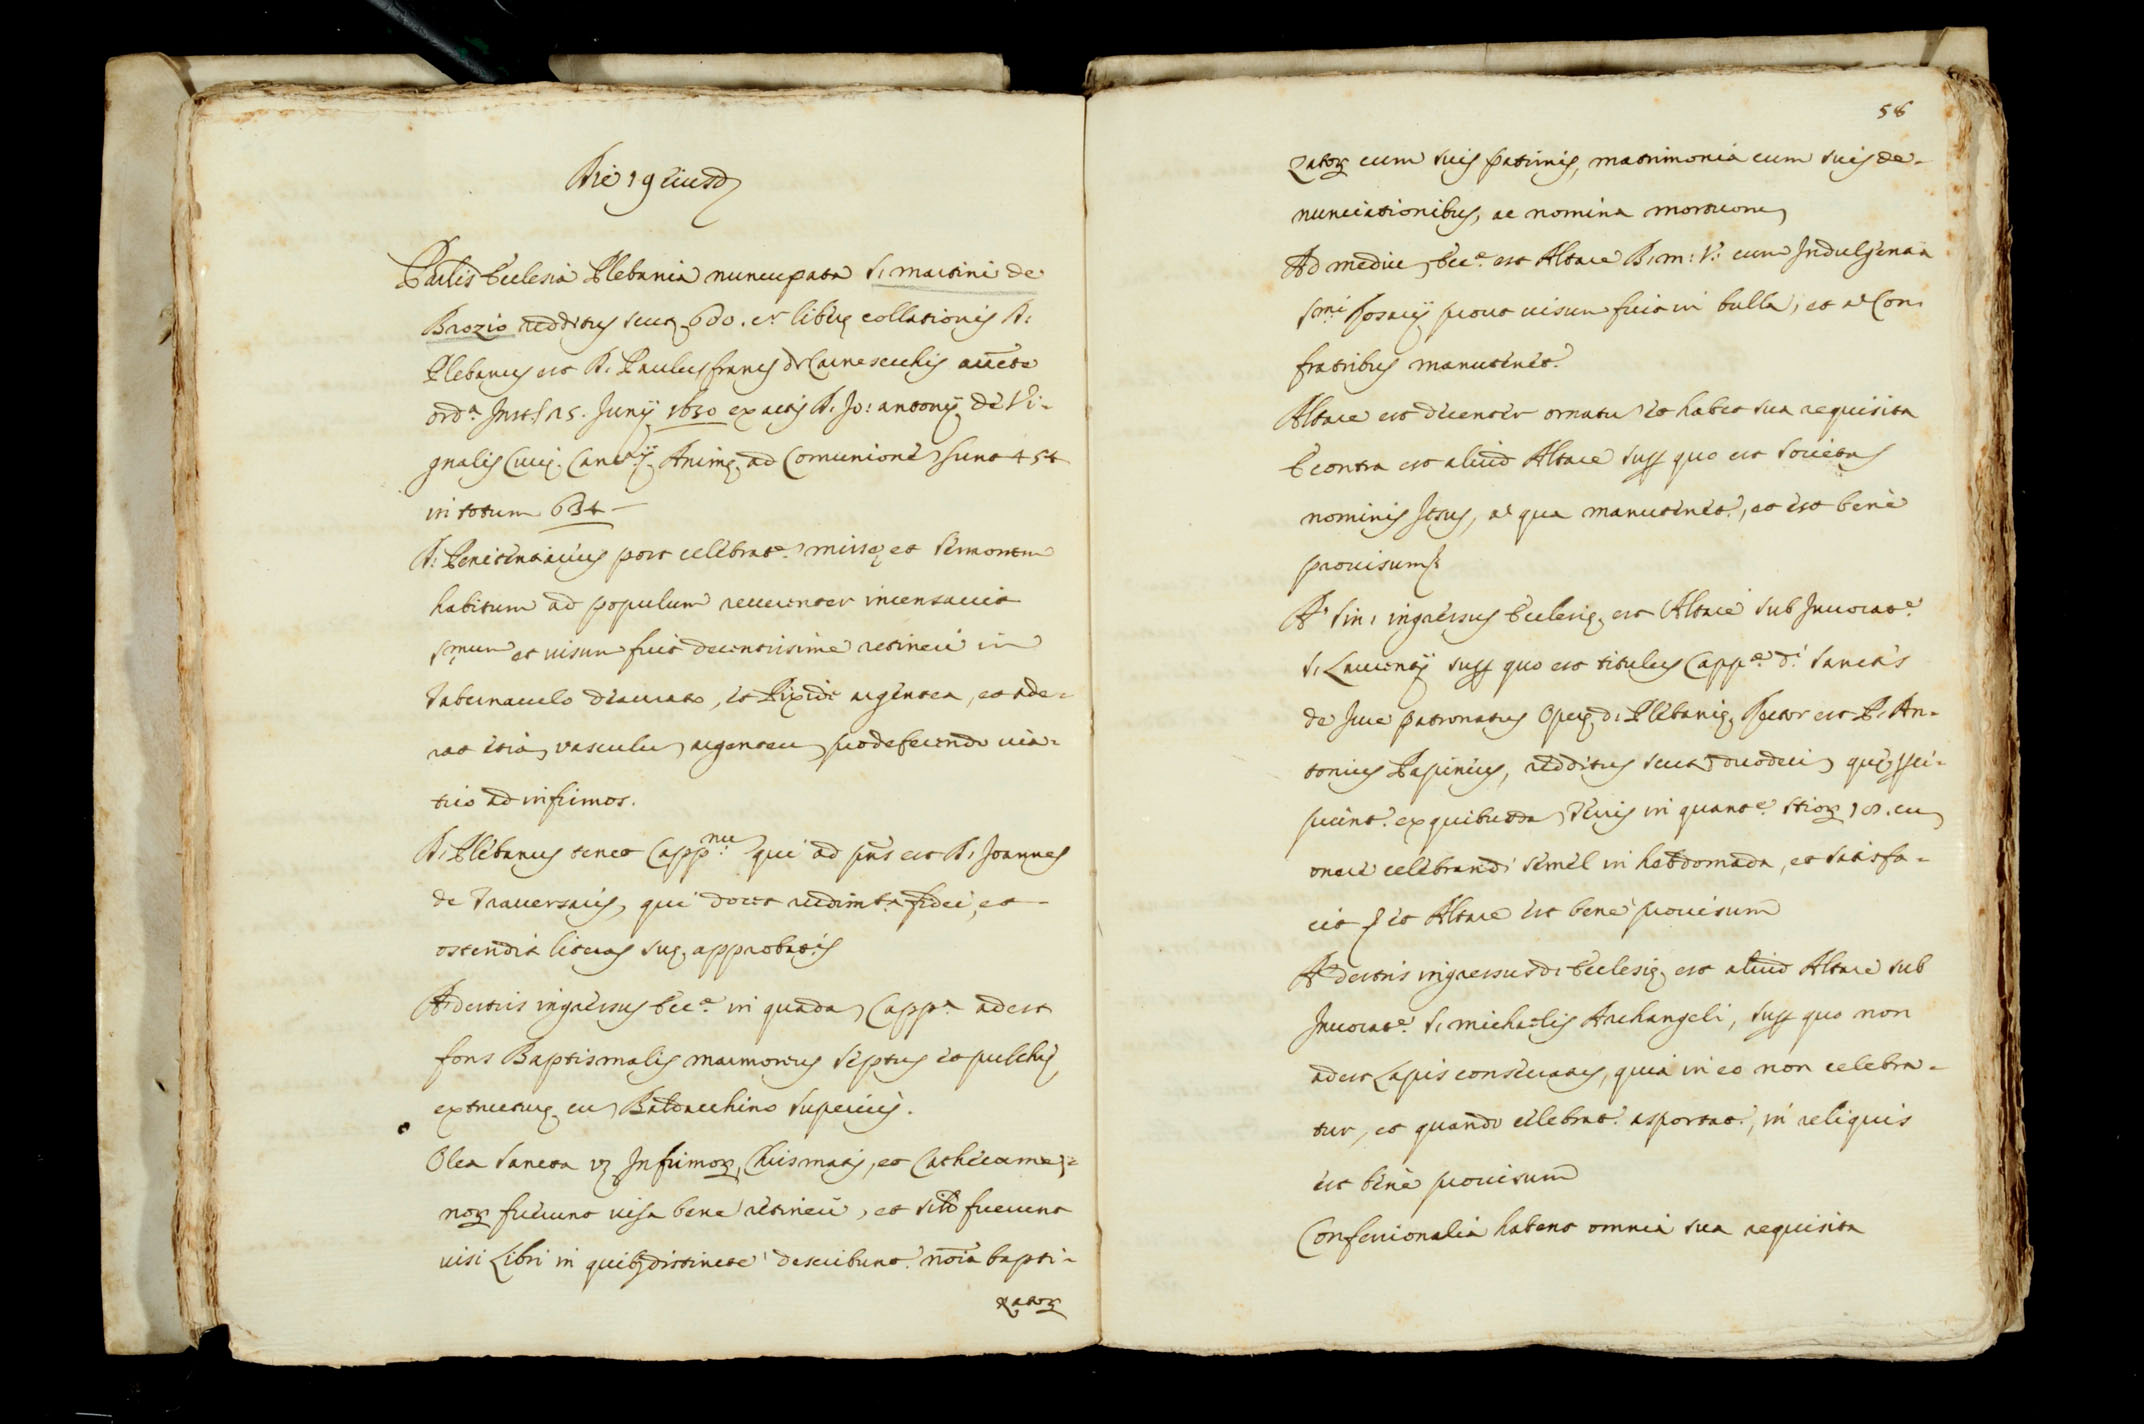 Die 19 eiusd
Parlis Ecclesia Plebania nuncupata S. Martini de
Brozio redditus scut. 600. et libere collationis D.
Plebanus est D. Paulus franc de Carnesecchis aucte
ord.a Inst. 25. Junij 1650 ex actis D. Jo: Antonij de Vi-
gnalis Curie Canc.rij Anime ad Comunione sunt 454
in totum 634 —
D. Penitentiarius post celebrat.e misse et sermonem
habitum ad populum reverenter incensavit
S.mum et visum fuit decentissime retineri in
tabernaculo deaurato, et Pixide argentea, et ade-
rat etia vasculu argenteu pro deferendo via-
tico ad infirmos.
D. Plebanus tenet Capp.nu qui ad pns est D. Joannes
de Traversaris, qui docet rudimta fidei, et
ostendit literas sue approbat.is
A dextris ingressus Ecc.e in quada Capp.a adest
fons Baptismalis marmoreus septus et pulchre
extructus cu Baldacchino superius.
Olea Sancta vz Infirmor, Chrismatis, et Cathecume-
nor fuerunt visa bene retineri, et sild fuerunt
visi Libri in quibus distincte describunt. noia bapti-
zator
58
zator cum suis patrinis, matrimonia cum suis de-
nunciationibus, ac nomina mortuorum
Ad mediu Ecc.e est Altare B. M: V: cum Indulgentia
S.mi Rosarij prout visum fuit in bulla, et a Con
fratribus manutenet.
Altare est decenter ornatu et habet sua requisita
E contra est aliud Altare supr quo est societas
nominis Jesus, a qua manutenet., et est bene
provisum
A sin. ingressus Ecclesie est Altare sub Invocat.e
S. Laurentij supr quo est titulus Capp.e d. Sancti
de Jure patronatus Opere d. Plebanie Rector est P. An-
tonius Papinius, redditus scut duodeci que perci-
piunt. ex quibusda terris in quant.e stior 18. cu
onere celebrandi semel in hebdomada, et satisfa-
cit et Altare est bene provisum
A dextris ingressus d. Ecclesie est aliud Altare sub
Invocat.e S. Michaelis Archangeli, supr quo non
adest Lapis consecratus, quia in eo non celebra-
tur, et quando celebrat. asportat., in reliquis
est bene provisum
Confessionalia habent omnia sua requisita